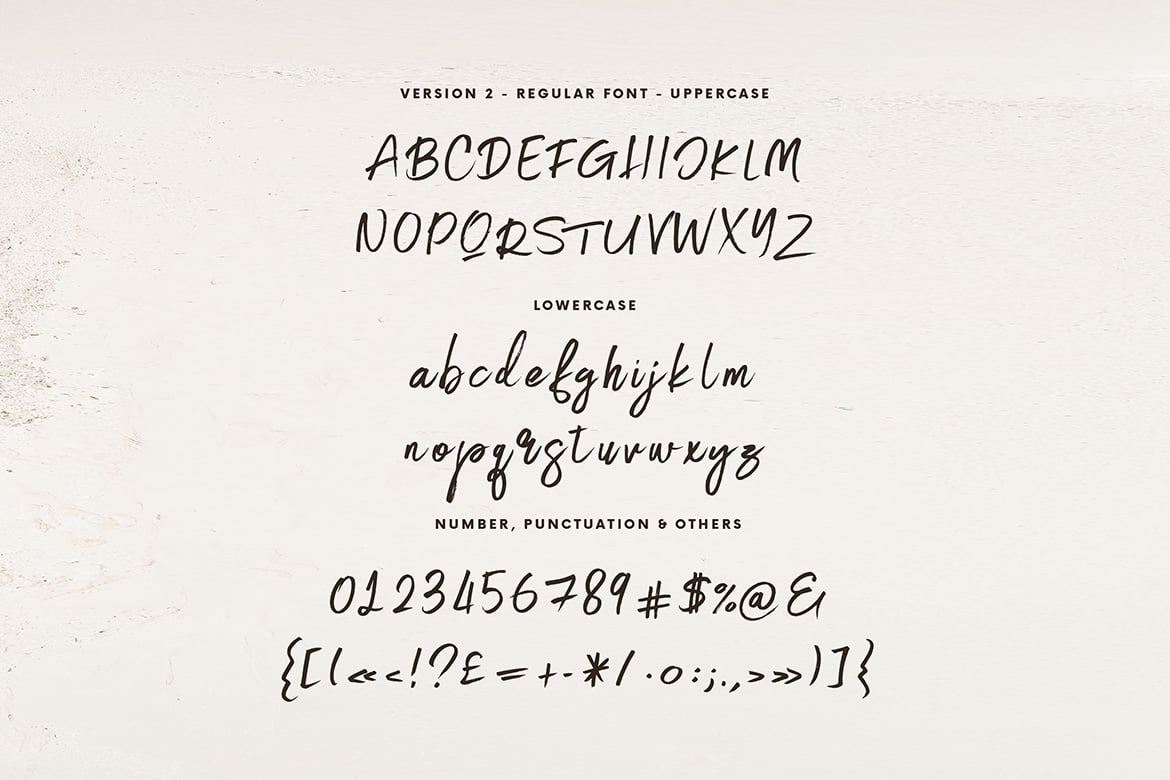 VERSION 2 - REGULAR FONT - UPPERCASE
ABCDEFGHIJKLM
NOPQRSTUVWXYZ
LOWERCASE
abcdefghijklm
nopqrstuvwxyz
NUMBER, PUNCTUATION & OTHERS
0123456789#$%@&
{[(«‹!?£=+-*/·o:;.,›»)]{